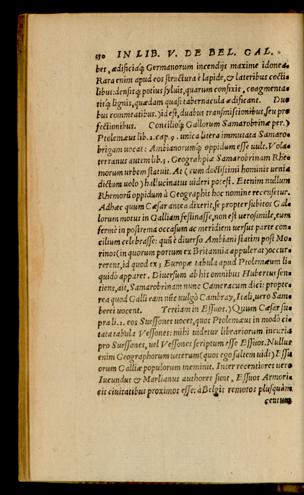 130 IN LIB. V. DE BEL. GAL.
bet, ædificiaq́ Germanorum incendijs maxime idonea.
Rara enim apud eos structura è lapide, & lateribus coctilibus:
densitq́ potius syluis, quarum consixit, coagmentatisq́
lignis, quædam quasi tabernacula ædificant. Duobus
commeatibus.) id est, duabus transmissionibus, seu profectionibus.
Concilioq́ Gallorum Samarobrinæ per.)
Ptolemæus lib. 2. cap. 9. unica litera immutata Samarobrigam
uocat: Ambianorumq́; oppidum esse uult. Volaterranus
autem lib. 3. Geographia Samarobrinam Rhemorum
urbem statuit. At (cum doctissimi hominis uenia
dictum uolo) hallucinatus uideri potest. Etenim nullum
Rhemorū oppidum à Geographis hoc nomine recensetur.
Adhæc quum Cæsar antea dixerit, se propter subitos Gallorum
motus in Galliam festinasse, non est uerosimile, eum
fermè in postrema occasum ac meridiem uersus parte concilium
celebrasse: quū è diuerso Ambiani statim post Morinos
(in quorum portum ex Britannia appulerat) occurrerent,
id quod ex; Europæ tabula apud Ptolemæum liquidò
apparet. Diuersum ab his omnibus Hubertus sentiens,
ait, Samarobrinam nunc Cameracum dici: propterea
quod Galli eam nūc uulgò Cambray, Itali, uerò Samaberi
uocent. Tertiam in Essuos.) Quum Cæsar supra
li. 2. eos Suessones uocet, quos Ptolemæus in modò citata
tabula Vessones: mihi uidetur librariorum incuria
pro Suessones, uel Vessones scriptum esse Essuos. Nullus
enim Geographorum ueterum (quos ego saltem uidi) Essuorum
Galliæ populorum meminit. Inter recentiores uerò
Iucundus & Marlianus authores sient, Essuos Armoricis
ciuitatibus proximos esse: à Belgis remotos plusquàm
centum